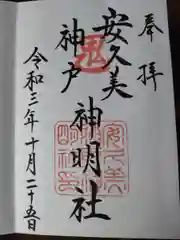 奉拝
安久美
神戸神明社
令和三年十月二十五日